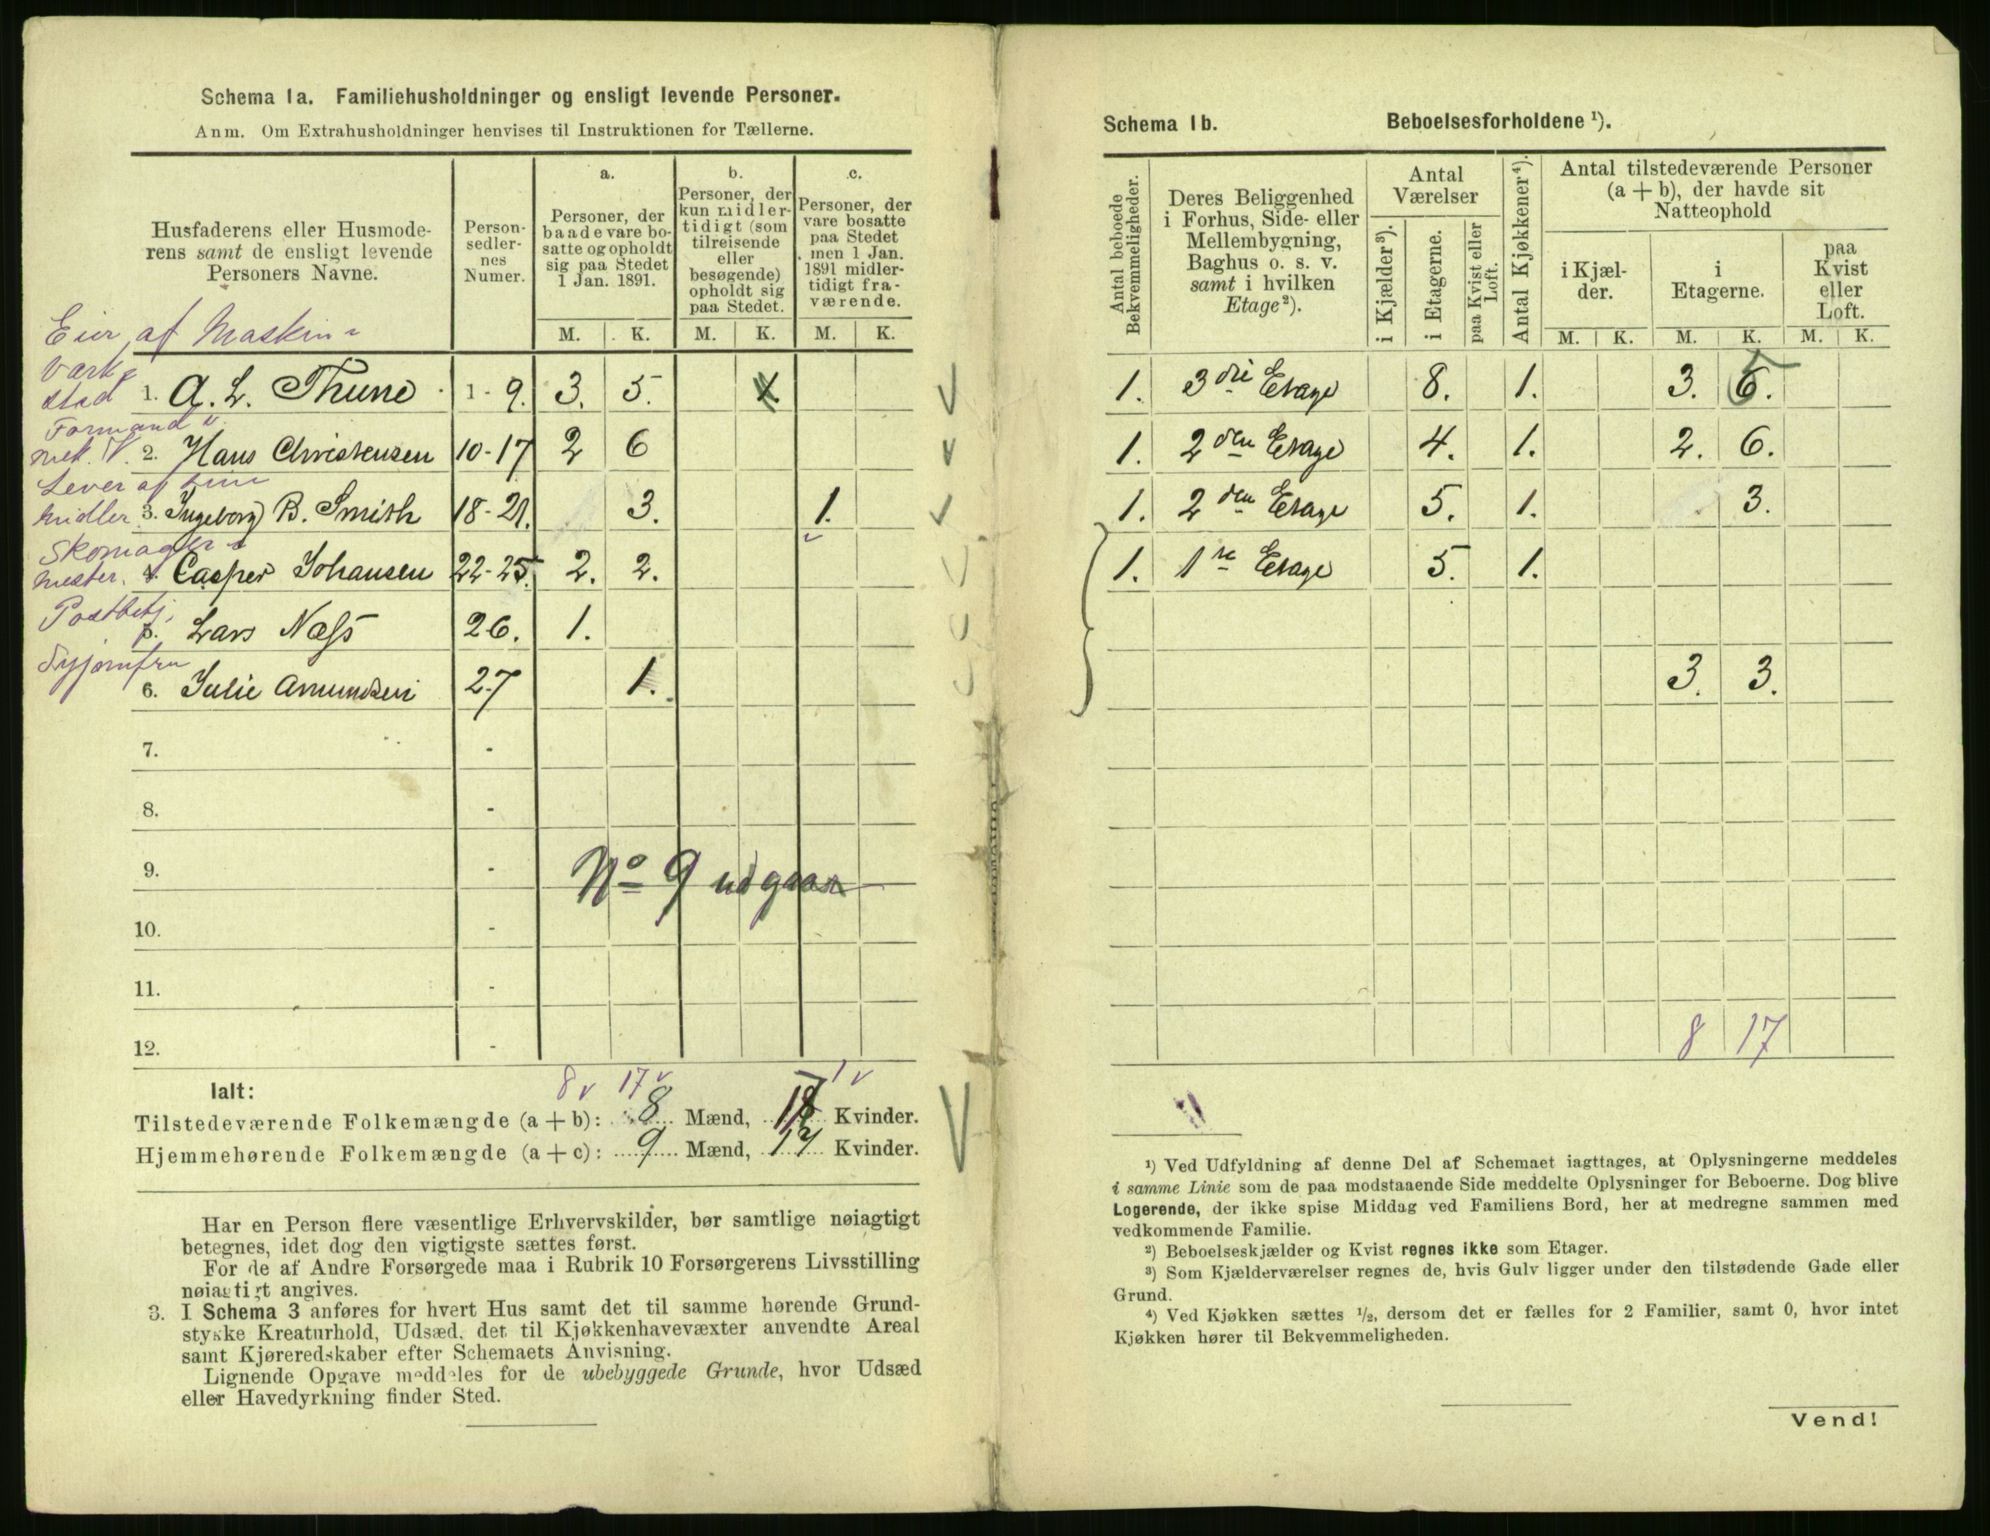 Schema 1a. Familiehusholdninger og ensligt levende Personer.
Anm. Om Extrahusholdninger henvises til Instruktionen for Tællerne.
Husfaderens eller Husmode-
rens samt de ensligt levende
Personers Navne.
Person-
sedler-
nes
Numer.
a.
Personer, der
baade vare bo-
satte og opholdt
sig paa Stedet
1 Jan. 1891.
b.
Personer, der
kun midler-
tidigt (som
tilreisende
eller
besøgende)
opholdt sig
paa Stedet.
c.
Personer, der
vare bosatte
paa Stedet
men 1 Jan.
1891 midler-
tidigt fra-
værende.
M. K. M. K. M. K.
Eier af Maskin-
værk-
stad
1. A. L. Thune 1 - 9. 3. 5.
Formand v.
mek. V. 2. Hans Christensen 10-17 2 6
Lever af sine
midler 3. Ingeborg B. Smith 18-21. 3. 1.
Skomager-
mester. 4. Casper Johansen 22-25. 2. 2.
Postbetj.
5. Lars Næss 26. 1.
Syjomfru
6. Julie Amundsen 27 1.
7. -
8. -
9. - No 9 udgaar
10. -
11. -
12. -
8 v 17 v 1 v
Ialt:
Tilstedeværende Folkemængde (a + b): 8 Mænd, 17 Kvinder.
Hjemmehørende Folkemængde (a + c): 9 Mænd, 17 Kvinder.
Har en Person flere væsentlige Erhvervskilder, bør samtlige nøiagtigt
betegnes, idet dog den vigtigste sættes først.
For de af Andre Forsørgede maa i Rubrik 10 Forsørgerens Livsstilling
nøiagtigt angives.
3. I Schema 3 anføres for hvert Hus samt det til samme hørende Grund-
stykke Kreaturhold, Udsæd, det til Kjøkkenhavevæxter anvendte Areal
samt Kjøreredskaber efter Schemaets Anvisning.
Lignende Opgave meddeles for de ubebyggede Grunde, hvor Udsæd
eller Havedyrkning finder Sted.
Schema 1b. Beboelsesforholdene ¹).
Antal beboede
Bekvemmeligheder.
Deres Beliggenhed
i Forhus, Side- eller
Mellembygning,
Baghus o. s. v.
samt i hvilken
Etage²).
Antal
Værelser
i Kjælder³).
i Etagerne.
paa Kvist eller
Loft.
Antal Kjøkkener⁴).
Antal tilstedeværende Personer
(a + b), der havde sit
Natteophold
i Kjæl-
der.
i
Etagerne.
paa
Kvist
eller
Loft.
M. K. M. K. M. K.
1. 3die Etage 8. 1. 3. 5
1. 2den Etage 4. 1. 2. 6.
1. 2den Etage 5. 1. 3.
1. 1ste Etage 5. 1.
3. 3.
8 17
¹) Ved Udfyldning af denne Del af Schemaet iagttages, at Oplysningerne meddeles
i samme Linie som de paa modstaaende Side meddelte Oplysninger for Beboerne. Dog blive
Logerende, der ikke spise Middag ved Familiens Bord, her at medregne sammen med
vedkommende Familie.
²) Beboelseskjælder og Kvist regnes ikke som Etager.
³) Som Kjælderværelser regnes de, hvis Gulv ligger under den tilstødende Gade eller
Grund.
⁴) Ved Kjøkken sættes ½, dersom det er fælles for 2 Familier, samt 0, hvor intet
Kjøkken hører til Bekvemmeligheden.
Vend!